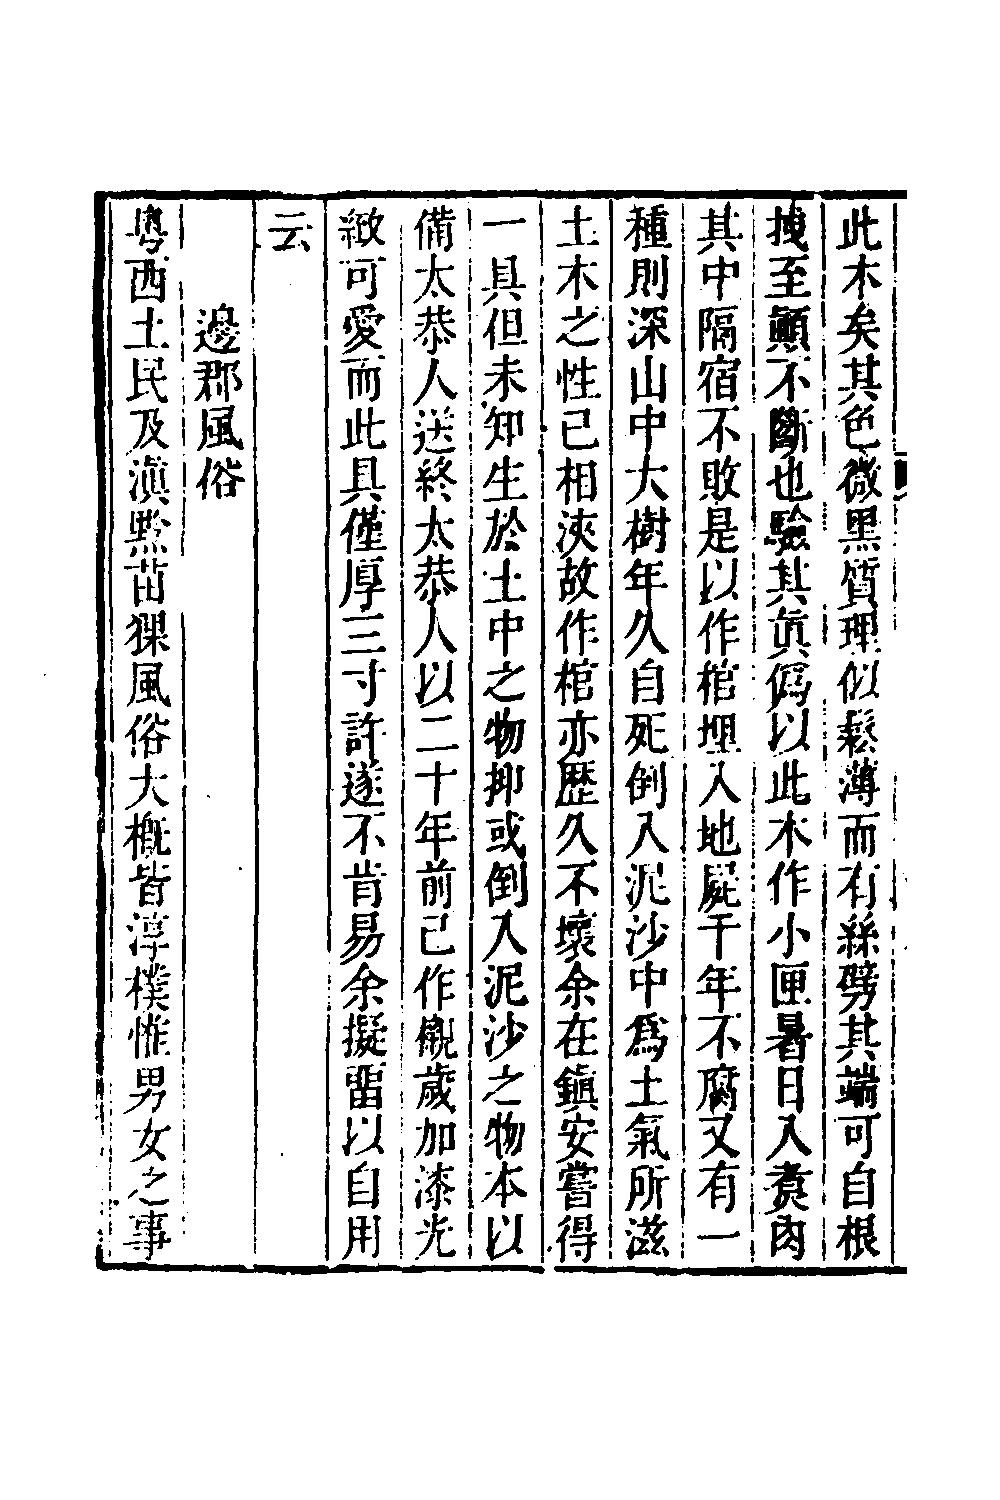 此木矣其色微黑質理似鬆薄而有絲劈其端可自根
拽至顛不斷也驗其眞僞以此木作小匣暑日入煑肉
其中隔宿不敗是以作棺埋入地屍千年不腐又有一
種則深山中大樹年久自死倒入泥沙中爲土氣所滋
土木之性已相浹故作棺亦歷久不壞余在鎮安嘗得
一具但未知生於土中之物抑或倒入泥沙之物本以
備太恭人送終太恭人以二十年前已作櫬歲加漆光
緻可愛而此具僅厚三寸許遂不肯易余擬畱以自用
云
邊郡風俗
粵西土民及滇黔苗猓風俗大槪皆淳樸惟男女之事